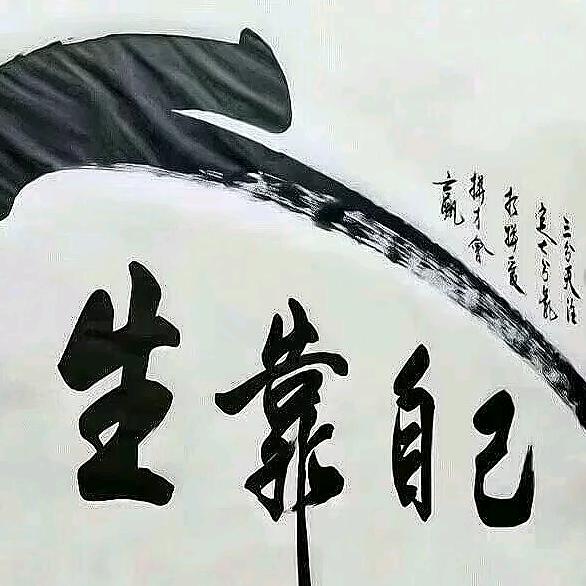 人
生靠自己
三分天注
定七分靠
打拼愛
拼才會
贏